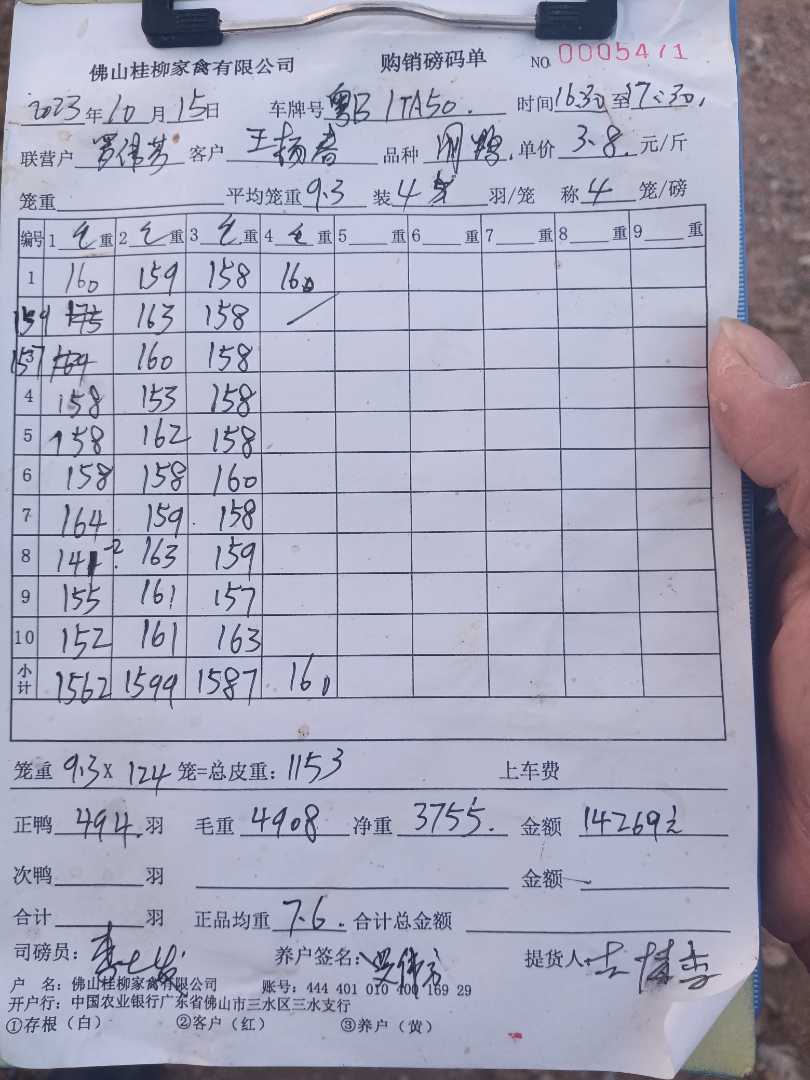 佛山桂柳家禽有限公司 购销磅码单 NO 0005471
2023年10月15日 车牌号粤B1TA50. 时间16:30至17:30.
联营户 客户 品种 单价3.8.元/斤
笼重 平均笼重9.3 装4 羽/笼 称4笼/磅
编号 1毛重 2毛重 3毛重 4毛重 5 重 6 重 7 重 8 重 9 重
1 160 159 158 160
159 163 158
157 160 158
4 158 153 158
5 158 162 158
6 158 158 160
7 164 159 158
8 141-2 163 159
9 155 161 157
10 152 161 163
小计 1562 1599 1587 160
笼重9.3X124笼=总皮重:1153 上车费
正鸭494.羽 毛重4908 净重3755. 金额14269元
次鸭 羽 金额
合计 羽 正品均重7.6. 合计总金额
司磅员: 养户签名: 提货人
户 名:佛山桂柳家禽有限公司 账号:444 401 010 400 169 29
开户行:中国农业银行广东省佛山市三水区三水支行
①存根(白) ②客户(红) ③养户(黄)